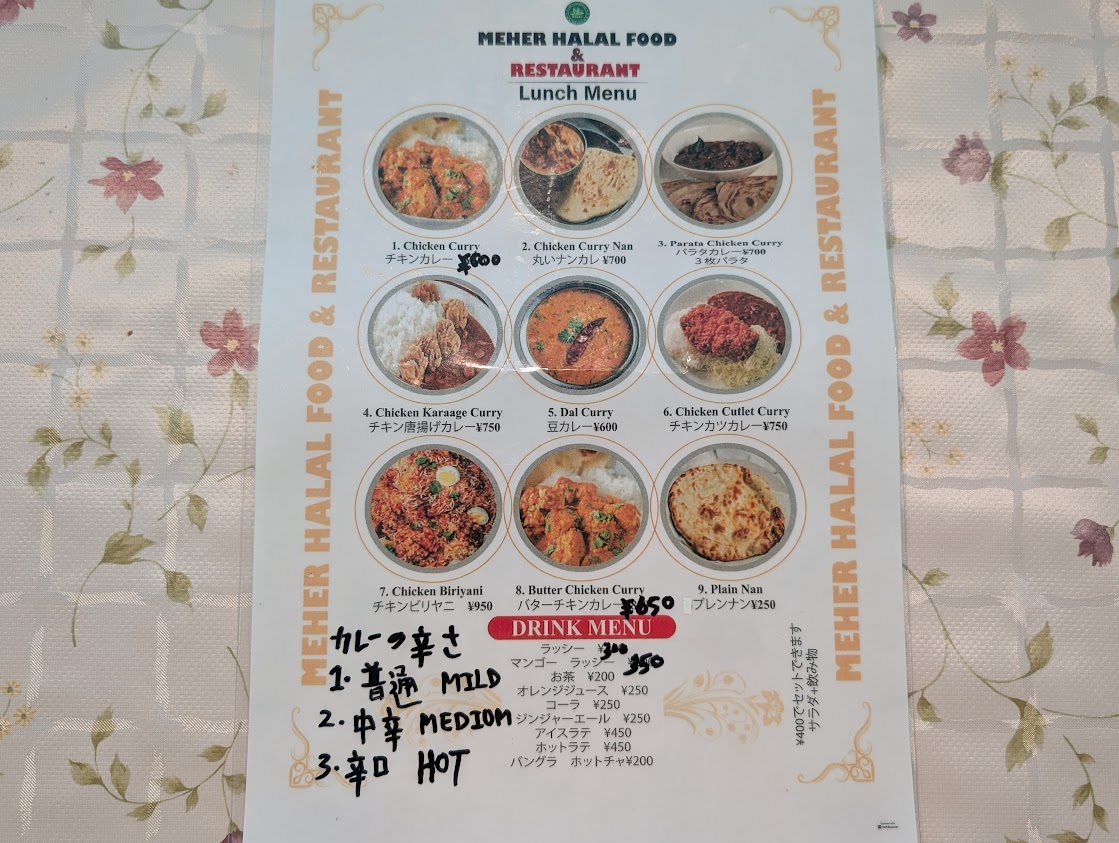 MEHER HALAL FOOD
&
RESTAURANT
Lunch Menu
MEHER HALAL FOOD & RESTAURANT
MEHER HALAL FOOD & RESTAURANT
1. Chicken Curry
チキンカレー ¥600
2. Chicken Curry Nan
丸いナンカレ ¥700
3. Parata Chicken Curry
パラタカレー¥700
3枚パラタ
4. Chicken Karaage Curry
チキン唐揚げカレー¥750
5. Dal Curry
豆カレー¥600
6. Chicken Cutlet Curry
チキンカツカレー¥750
7. Chicken Biriyani
チキンビリヤニ ¥950
8. Butter Chicken Curry
バターチキンカレー ¥650
9. Plain Nan
プレンナン¥250
カレーの辛さ
1. 普通 MILD
2. 中辛 MEDIOM
3. 辛口 HOT
DRINK MENU
ラッシー ¥300
マンゴー ラッシー 350
お茶 ¥200
オレンジジュース ¥250
コーラ ¥250
ジンジャーエール ¥250
アイスラテ ¥450
ホットラテ ¥450
バングラ ホットチャ¥200
¥400でセットできます
サラダ+飲み物